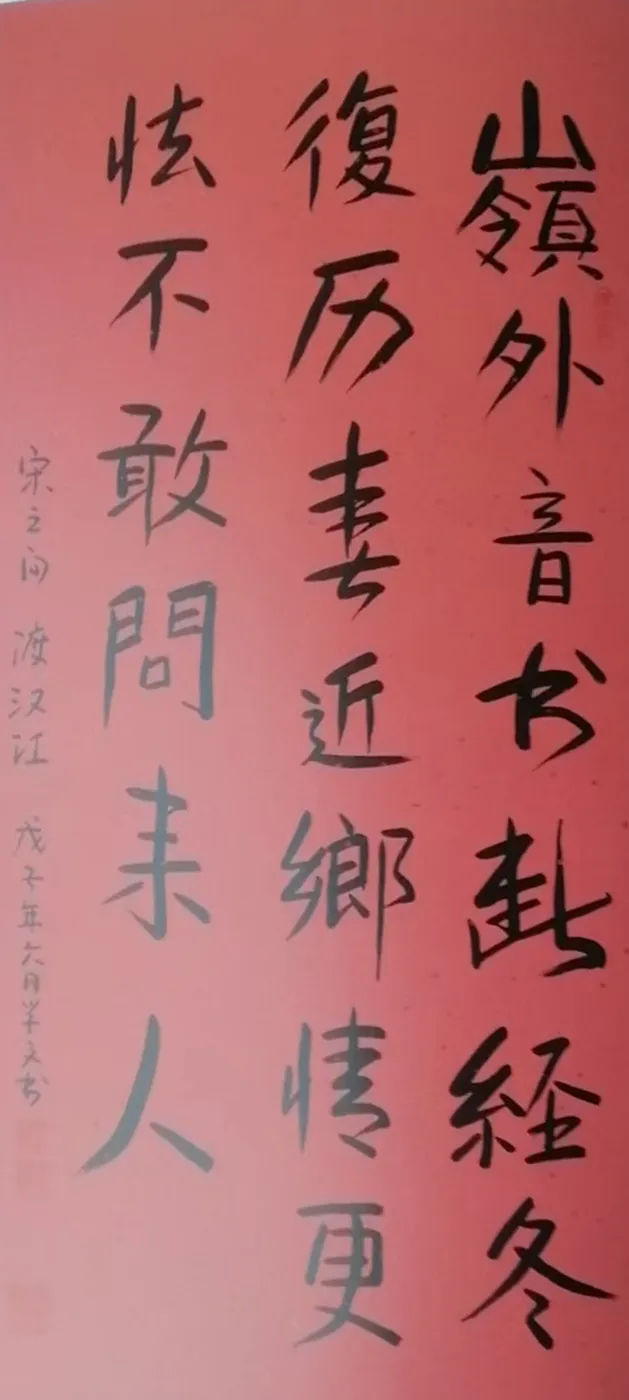 嶺外音书断経冬
復历春近鄉情更
怯不敢問来人
宋之问 渡汉江 戊子年六月学文书